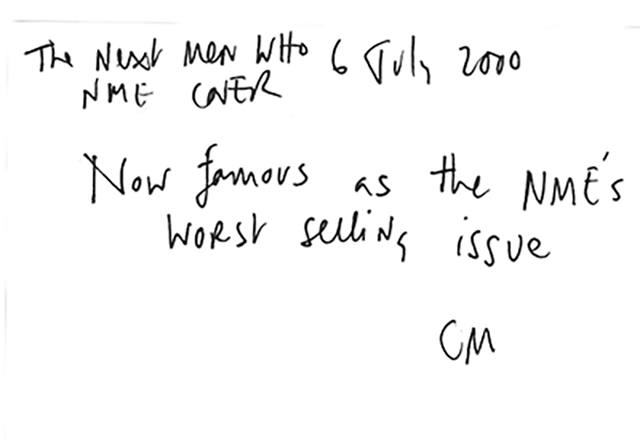 The Next Men WHO 6 July 2000
NME COVER
Now famous as the NME's
WORST selling issue
CM